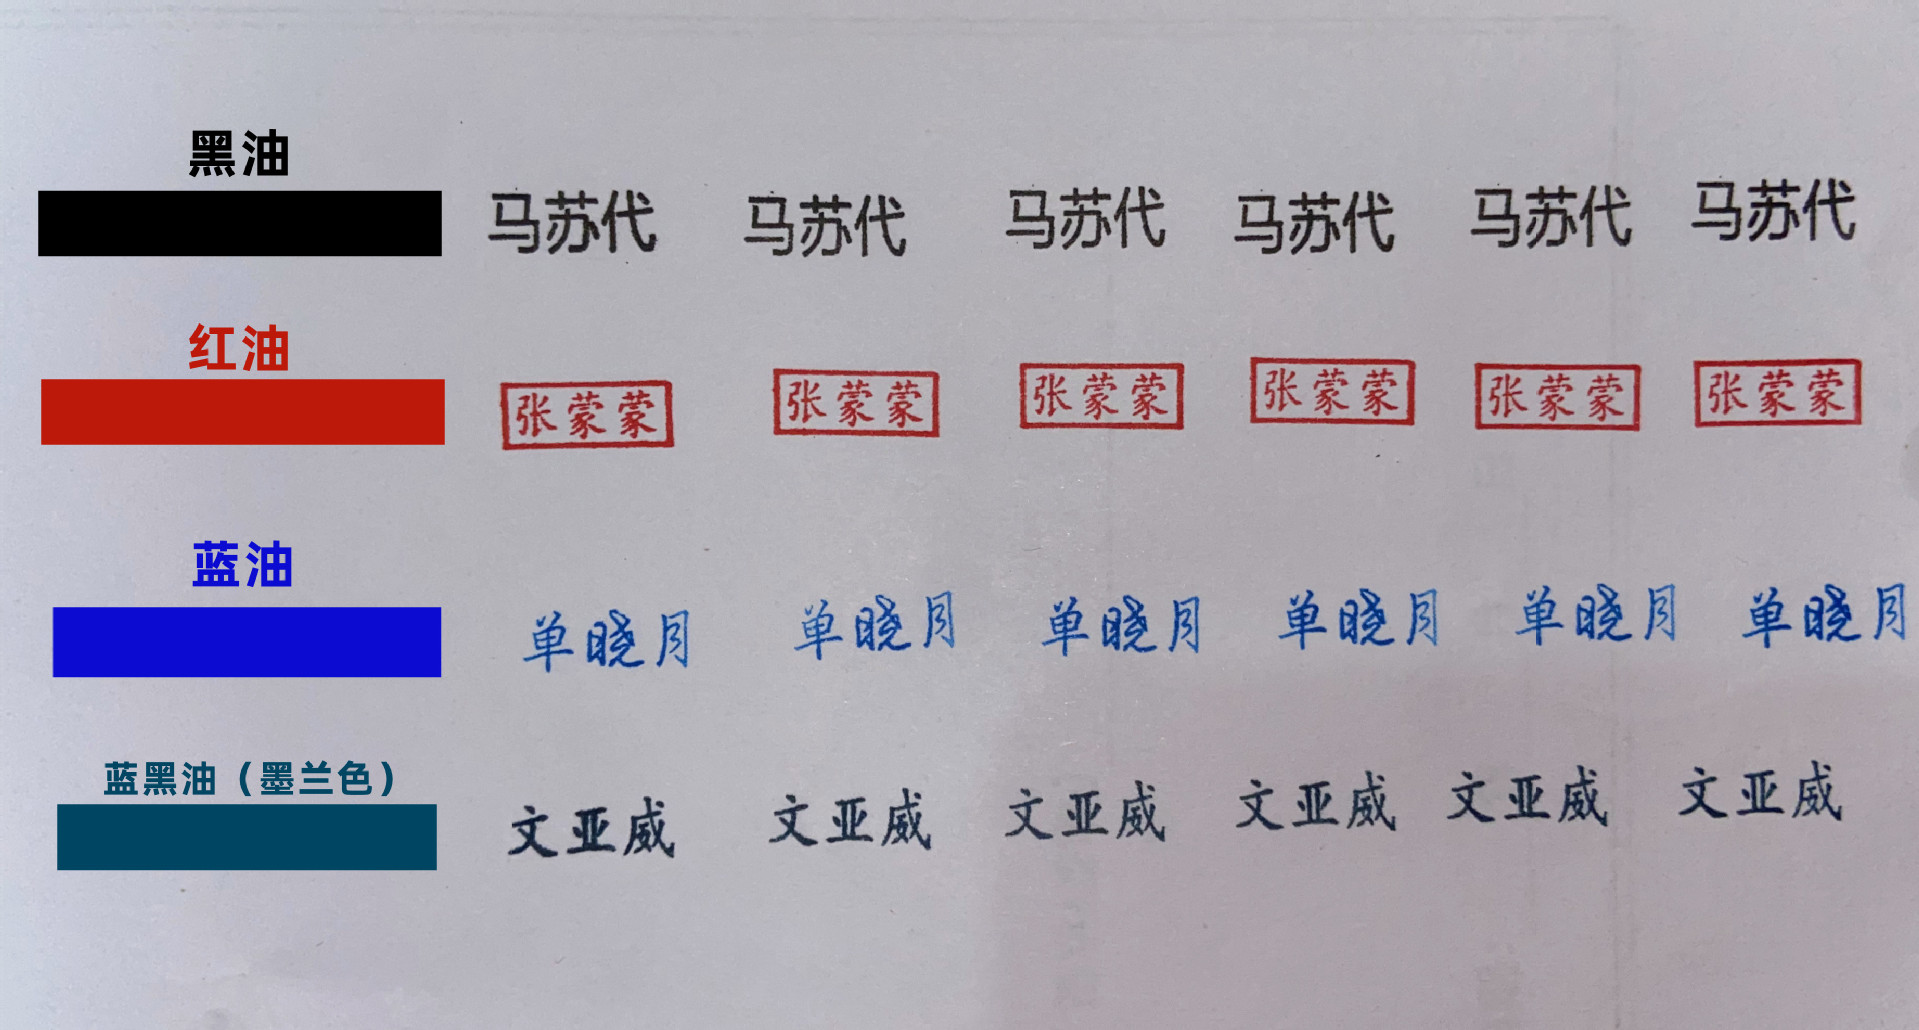 黑油
马苏代 马苏代 马苏代 马苏代 马苏代 马苏代
红油
张蒙蒙 张蒙蒙 张蒙蒙 张蒙蒙 张蒙蒙 张蒙蒙
蓝油
单晓月 单晓月 单晓月 单晓月 单晓月 单晓月
蓝黑油（墨兰色）
文亚威 文亚威 文亚威 文亚威 文亚威 文亚威